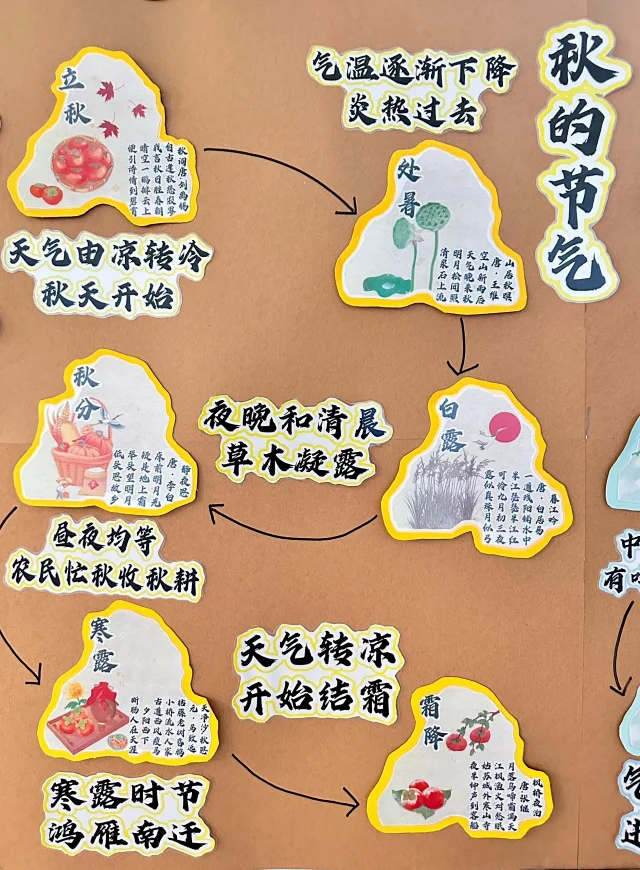 秋的节气
立秋
秋词唐·刘禹锡
自古逢秋悲寂寥
我言秋日胜春朝
晴空一鹤排云上
便引诗情到碧霄
天气由凉转冷
秋天开始
气温逐渐下降
炎热过去
处暑
山居秋暝
唐·王维
空山新雨后
天气晚来秋
明月松间照
清泉石上流
白露
暮江吟
唐·白居易
一道残阳铺水中
半江瑟瑟半江红
可怜九月初三夜
露似真珠月似弓
夜晚和清晨
草木凝露
秋分
静夜思
唐·李白
床前明月光
疑是地上霜
举头望明月
低头思故乡
昼夜均等
农民忙秋收秋耕
寒露
天净沙秋思
元·马致远
枯藤老树昏鸦
小桥流水人家
古道西风瘦马
夕阳西下
断肠人在天涯
寒露时节
鸿雁南迁
天气转凉
开始结霜
霜降
枫桥夜泊
唐·张继
月落乌啼霜满天
江枫渔火对愁眠
姑苏城外寒山寺
夜半钟声到客船
中
有
气